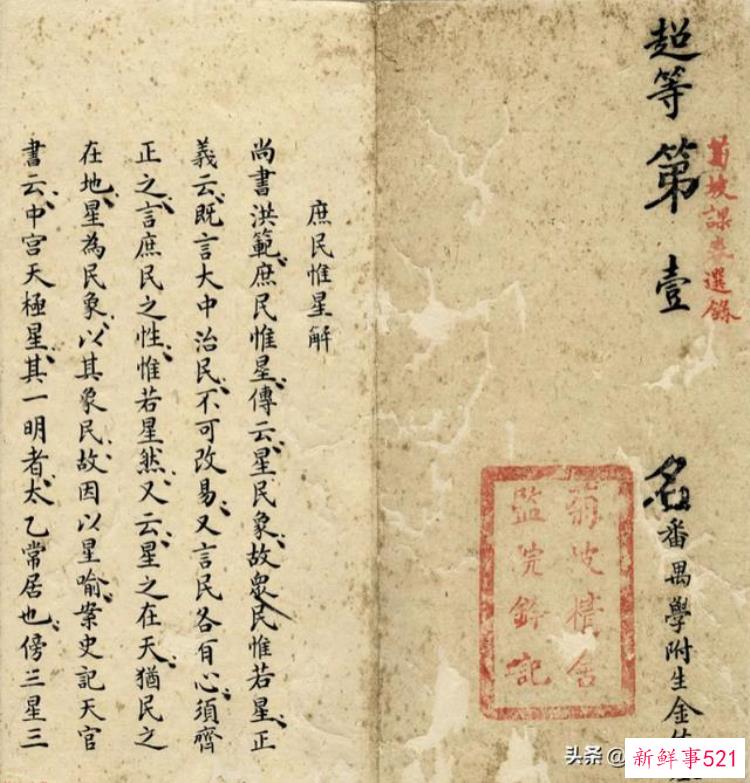 菊坡課卷選錄
超等第壹名
番禺學附生金
菊坡精舍
監院鈐記
庶民惟星解
尚書洪範庶民惟星傳云星民象故眾民惟若星正
義云既言大中治民不可改易又言民各有心須齊
正之言庶民之性惟若星然又云星之在天猶民之
在地星為民象以其象民故因以星喻案史記天官
書云中宮天極星其一明者太乙常居也傍三星三
头条@
新鲜事521